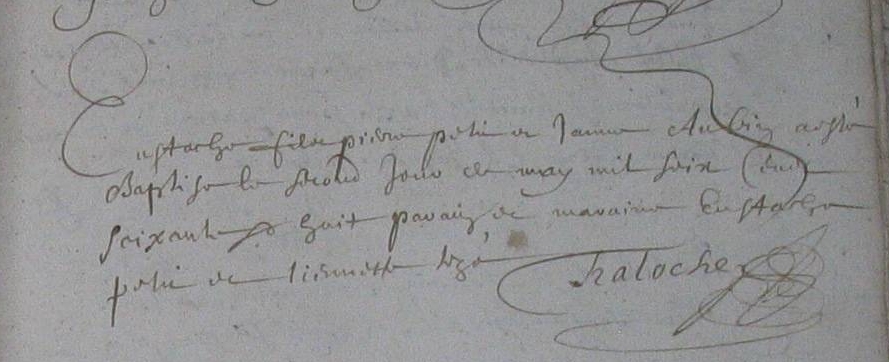 Eustache fils pierre petit et Janne Aubin a esté
Baptise le second Jour de may mil seix Cent
seixante huit parain et maraine Eustache
petit et
Chaloche